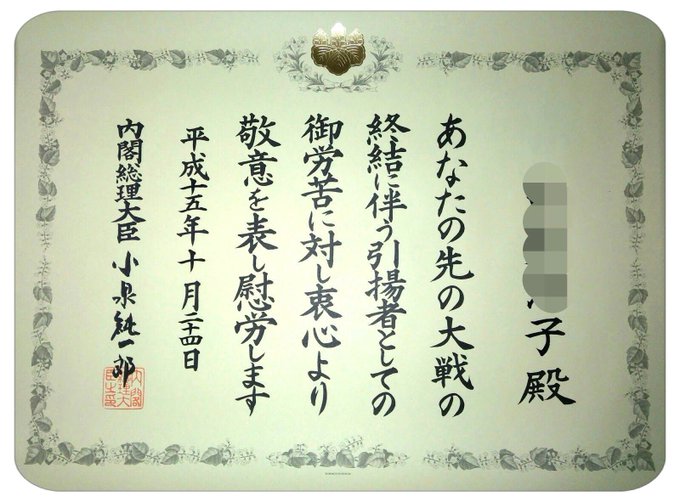 子殿
あなたの先の大戦の
終結に伴う引揚者としての
御労苦に対し衷心より
敬意を表し慰労します
平成十五年十月二十四日
内閣総理大臣 小泉純一郎
内閣総理大臣之印